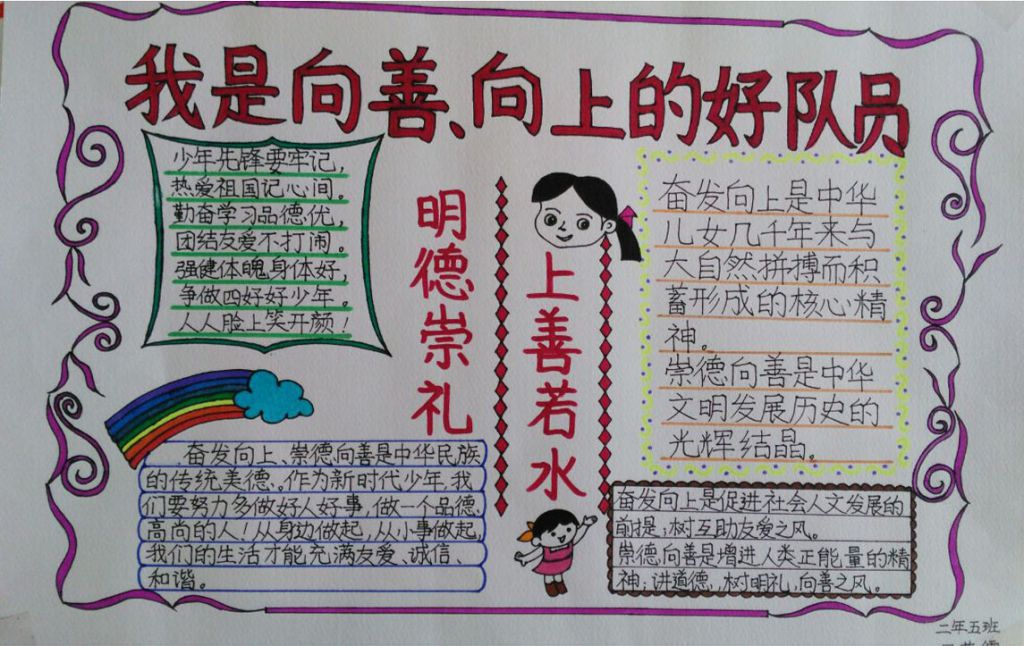 我是向善、向上的好队员
少年先锋要牢记，
热爱祖国记心间。
勤奋学习品德优，
团结友爱不打闹。
强健体魄身体好，
争做四好好少年。
人人脸上笑开颜！
明德崇礼
上善若水
奋发向上是中华
儿女几千年来与
大自然拼搏而积
蓄形成的核心精
神。
崇德向善是中华
文明发展历史的
光辉结晶。
奋发向上、崇德向善是中华民族
的传统美德、。作为新时代少年，我
们要努力多做好人好事，做一个品德
高尚的人！从身边做起，从小事做起，
我们的生活才能充满友爱、诚信、
和谐。
奋发向上是促进社会人文发展的
前提；树互助友爱之风。
崇德向善是增进人类正能量的精
神；讲道德、树明礼，向善之风。
二年五班